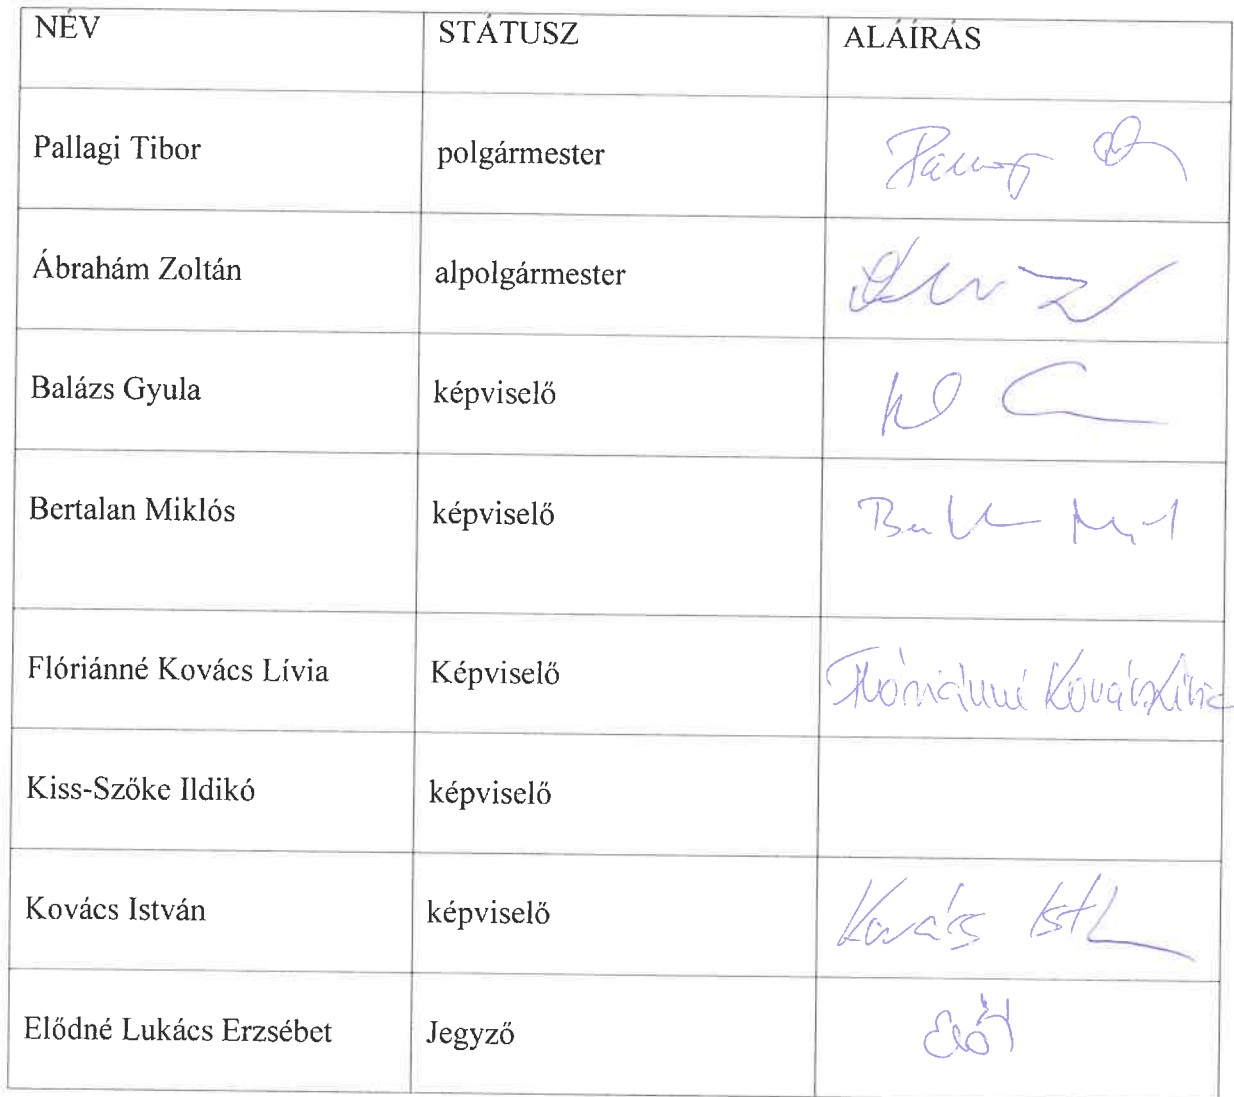 NÉV STÁTUSZ ALÁÍRÁS
Pallagi Tibor polgármester
Ábrahám Zoltán alpolgármester
Balázs Gyula képviselő
Bertalan Miklós képviselő
Flóriánné Kovács Lívia Képviselő Flóriánné Kovács Lívia
Kiss-Szőke Ildikó képviselő
Kovács István képviselő Kovács
Elődné Lukács Erzsébet Jegyző